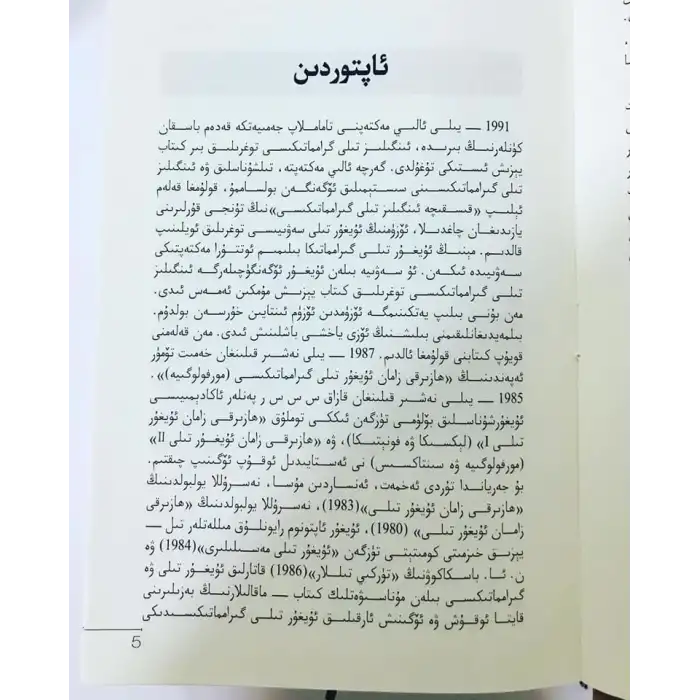 ئاپتوردىن
1991 — يىلى ئالىي مەكتەپنى تاماملاپ جەمىيەتكە قەدەم باسقان
كۈنلەرنىڭ بىرىدە، ئىنگلىز تىلى گرامماتىكىسى توغرىلىق بىر كىتاب
يېزىش ئىستىكى تۇغۇلدى. گەرچە ئالىي مەكتەپتە، تىلشۇناسلىق ۋە ئىنگلىز
تىلى گرامماتىكىسىنى سىستېمىلىق ئۆگەنگەن بولساممۇ، قولۇمغا قەلەم
ئېلىپ «قىسقىچە ئىنگلىز تىلى گرامماتىكىسى»نىڭ تۇنجى قۇرلىرىنى
يازىدىغان چاغدىلا، ئۆزۈمنىڭ ئۇيغۇر تىلى سەۋىيىسى توغرىلىق ئويلىنىپ
قالدىم. مېنىڭ ئۇيغۇر تىلى گرامماتىكا بىلىمىم ئوتتۇرا مەكتەپتىكى
سەۋىيىدە ئىكەن. ئۇ سەۋىيە بىلەن ئۇيغۇر ئۆگەنگۈچىلەرگە ئىنگلىز
تىلى گرامماتىكىسى توغرىلىق كىتاب يېزىش مۇمكىن ئەمەس ئىدى.
مەن بۇنى بىلىپ يەتكىنىمگە ئۆزۈمدىن ئۆزۈم ئىنتايىن خۇرسەن بولدۇم.
بىلمەيدىغانلىقىمنى بىلىشنىڭ ئۆزى ياخشى باشلىنىش ئىدى. مەن قەلەمنى
قويۇپ كىتابنى قولۇمغا ئالدىم. 1987 — يىلى نەشىر قىلىنغان خەمىت تۆمۈر
ئەپەندىنىڭ «ھازىرقى زامان ئۇيغۇر تىلى گرامماتىكىسى (مورفولوگىيە)».
1985 — يىلى نەشىر قىلىنغان قازاق س س س ر پەنلەر ئاكادېمىيىسى
ئۇيغۇرشۇناسلىق بۆلۈمى تۈزگەن ئىككى توملۇق «ھازىرقى زامان ئۇيغۇر
تىلى I» (لېكسىكا ۋە فونېتىكا)، ۋە «ھازىرقى زامان ئۇيغۇر تىلى II»
(مورفولوگىيە ۋە سىنتاكسىس) نى ئەستايىدىل ئوقۇپ ئۆگىنىپ چىقتىم.
بۇ جەرياندا تۇردى ئەخمەت، ئەنساردىن مۇسا، نەسرۇللا يولبولدىنىڭ
«ھازىرقى زامان ئۇيغۇر تىلى»(1983)، نەسرۇللا يولبولدىنىڭ «ھازىرقى
زامان ئۇيغۇر تىلى» (1980)، ئۇيغۇر ئاپتونوم رايونلۇق مىللەتلەر تىل —
يېزىق خىزمىتى كومىتېتى تۈزگەن «ئۇيغۇر تىلى مەسىلىلىرى»(1984) ۋە
ن. ئا. باسكاكوۋنىڭ «تۈركىي تىللار»(1986) قاتارلىق ئۇيغۇر تىلى ۋە
گرامماتىكىسى بىلەن مۇناسىۋەتلىك كىتاب — ماقالىلارنىڭ بەزىلىرىنى
قايتا ئوقۇش ۋە ئۆگىنىش ئارقىلىق ئۇيغۇر تىلى گرامماتىكىسىدىكى
5